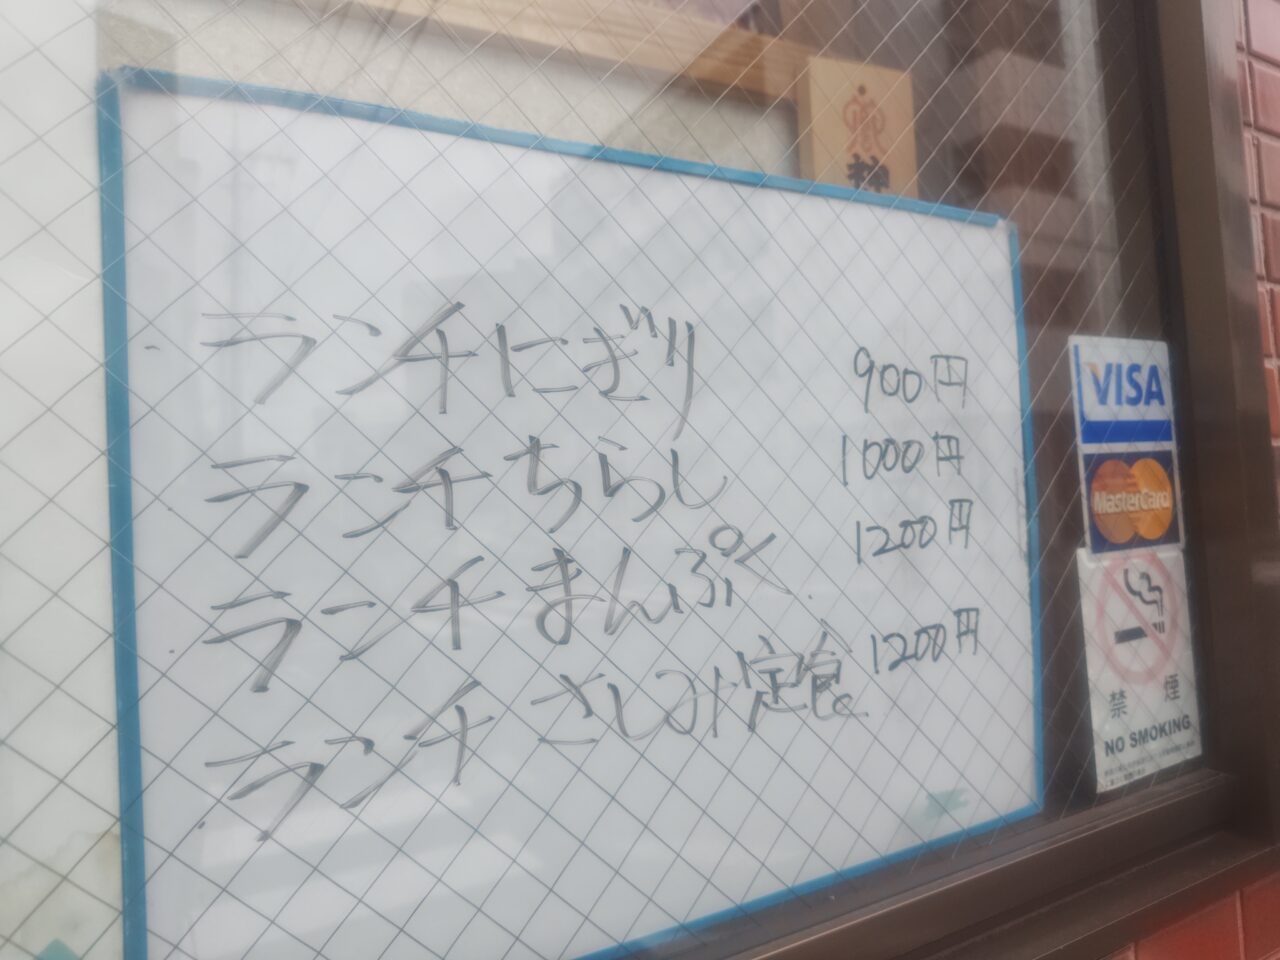 神
ランチにぎり 900円
ランチちらし 1000円
ランチまんぷく 1200円
ランチさしみ定食 1200円
VISA
MasterCard
禁煙
NO SMOKING